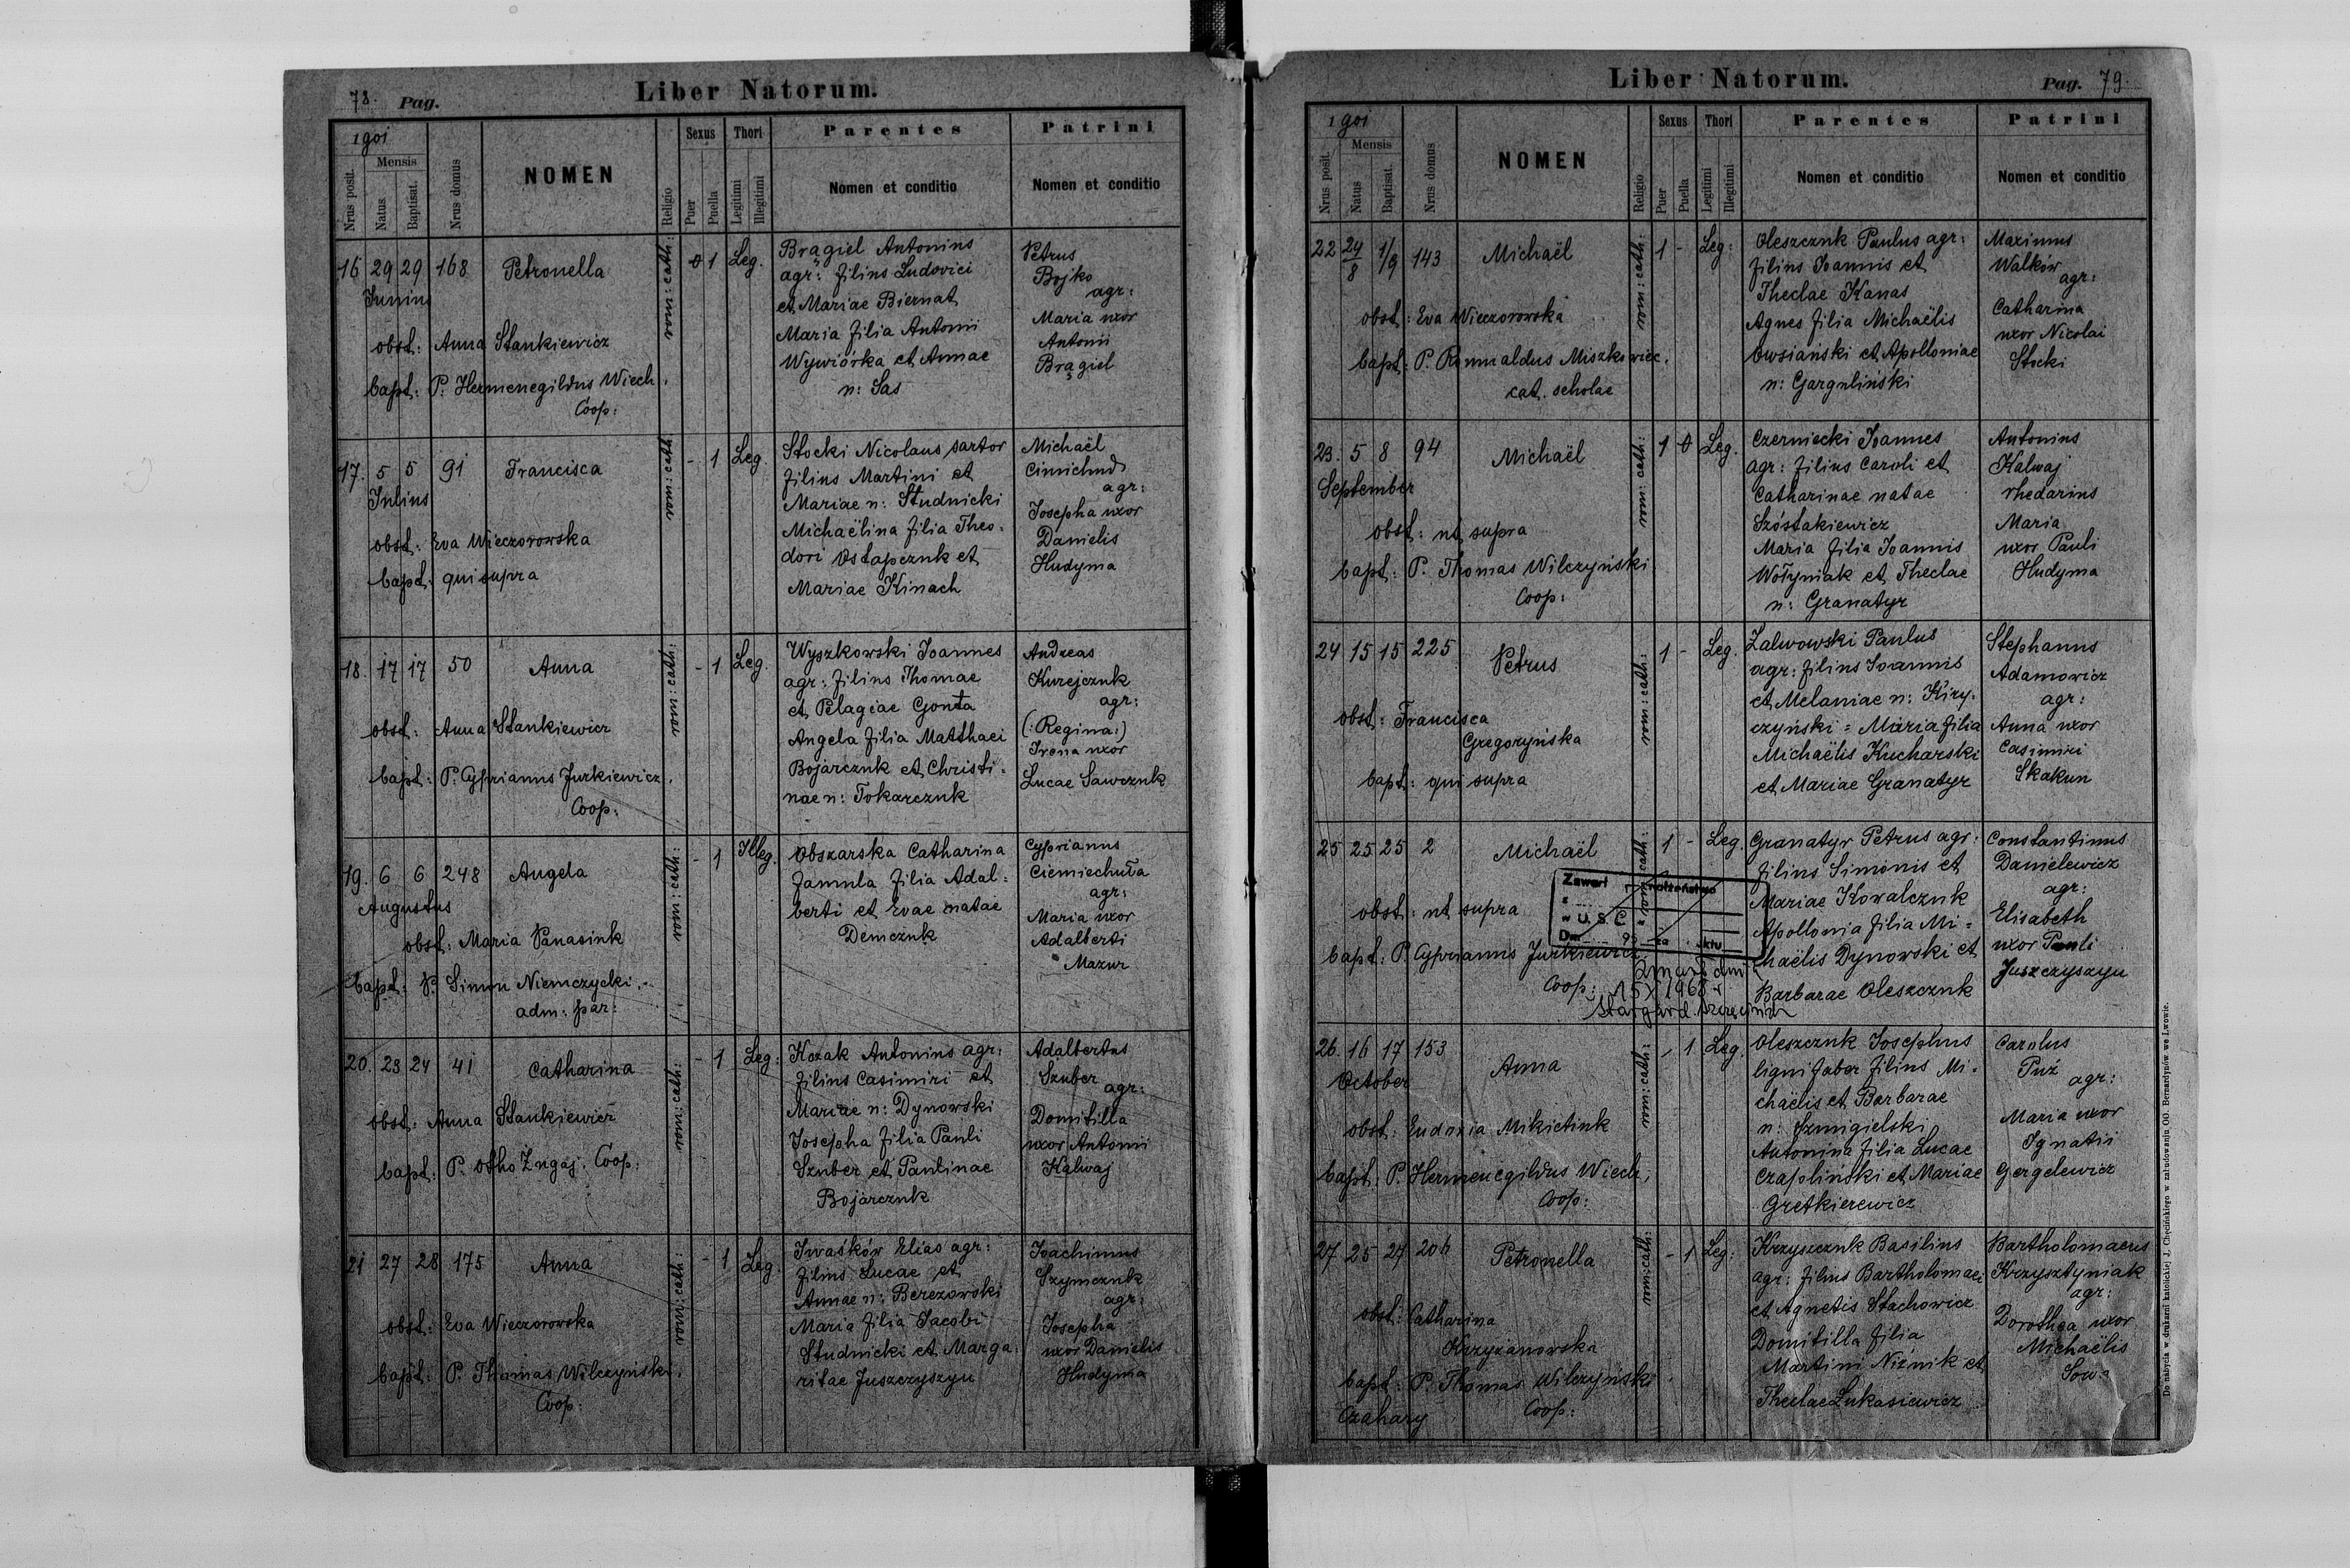 78. Pag.
Liber Natorum.
1901
Mensis
Nrus posit.
Natus
Baptisat.
Nrus domus
NOMEN
Religio
Sexus
Puer
Puella
Thori
Legitimi
Illegitimi
Parentes
Nomen et conditio
Patrini
Nomen et conditio
16 29 29 168 Petronella
Junius
obst: Anna Stankiewicz
bapt: P. Hermenegildus Wiech.
Coop:
rom: cath:
0 1 Leg.
Brągiel Antonius
agr: filius Ludovici
et Mariae Biernat
Maria filia Antonii
Wywiórka et Annae
n: Sas
Petrus
Bojko
agr:
Maria uxor
Antonii
Brągiel
17. 5 5 91 Francisca
Julius
obst: Eva Wieczorowska
bapt: qui supra
rom: cath:
- 1 Leg.
Stocki Nicolaus sartor
filius Martini et
Mariae n: Studnicki
Michaëlina filia Theo-
dori Ostapczuk et
Mariae Kinach
Michaël
agr:
Josepha uxor
Danielis
Hudyma
18. 17 17 50 Anna
obst: Anna Stankiewicz
bapt: P. Cyprianus Jurkiewicz,
Coop:
rom: cath:
- 1 Leg.
Wyszkowski Joannes
agr: filius Thomae
et Pelagiae Gonta
Angela filia Matthaei
Bojarczuk et Christi-
nae n: Tokarczuk
Andreas
Kurejczuk
agr:
(:Regina:)
Irena uxor
Lucae Sawczuk
19. 6 6 248 Angela
Augustus
obst: Maria Panasiuk
bapt: P. Simon Niemczycki
adm: par:
rom: cath:
- 1 Illeg.
Obszarska Catharina
famula filia Adal-
berti et Evae natae
Demczuk
Cyprianus
Ciemiechuła
agr:
Maria uxor
Adalberti
Mazur
20. 23 24 41 Catharina
obst: Anna Stankiewicz
bapt: P. Otho Zugaj. Coop:
rom: cath:
- 1 Leg:
Kozak Antonius agr:
filius Casimiri et
Mariae n: Dynowski
Josepha filia Pauli
Szuber et Paulinae
Bojarczuk
Adalbertus
Szuber
agr:
Domitilla
uxor Antonii
Kalwaj
21 27 28 175 Anna
obst: Eva Wieczorowska
bapt: P. Thomas Wilczyński.
Coop:
rom: cath:
- 1 Leg.
Iwaśków Elias agr:
filius Lucae et
Annae n: Berezowski
Maria filia Jacobi
Studnicki et Marga-
ritae Juszczyszyn
Joachimus
Szymczuk
agr:
Josepha
uxor Danielis
Hudyma
Liber Natorum.
Pag. 79.
1901
Mensis
Nrus posit.
Natus
Baptisat.
Nrus domus
NOMEN
Religio
Sexus
Puer
Puella
Thori
Legitimi
Illegitimi
Parentes
Nomen et conditio
Patrini
Nomen et conditio
22 24/8 1/9 143 Michaël
obst: Eva Wieczorowska
bapt: P. Romualdus Miszkowiec.
cat. scholae
rom: cath:
1 - Leg:
Oleszczuk Paulus agr:
filius Joannis et
Theclae Kanas
Agnes filia Michaëlis
Owsiański et Apolloniae
n: Garguliński
Maximus
Walków
agr:
Catharina
uxor Nicolai
Stocki
23. 5 8 94 Michaël
September
obst: ut supra
bapt: P. Thomas Wilczyński
Coop:
rom: cath:
1 0 Leg.
Czerniecki Joannes
agr: filius Caroli et
Catharinae natae
Szóstakiewicz
Maria filia Joannis
Wołyniak et Theclae
n: Granatyr
Antonius
Kalwaj
rhedarius
Maria
uxor Pauli
Hudyma
24 15 15 225 Petrus
obst: Francisca
Gregoryńska
bapt: qui supra
rom: cath:
1 - Leg.
Zalwowski Paulus
agr: filius Joannis
et Melaniae n: Kiry-
czyński = Maria filia
Michaëlis Kucharski
et Mariae Granatyr
Stephanus
Adamowicz
agr:
Anna uxor
Casimiri
Skakun
25 25 25 2 Michaël
obst: ut supra
bapt: P. Cyprianus Jurkiewicz
Coop:
rom: cath:
1 - Leg.
Zawarł małżeństwo
z
w U.S.C.
Dn. 19 za aktu
Zmarł dn.
15 X 1968 r.
Stargard Szczeciń
Granatyr Petrus agr:
filius Simonis et
Mariae Kowalczuk
Apollonia filia Mi-
chaëlis Dynowski et
Barbarae Oleszczuk
Constantinus
Danielewicz
agr:
Elisabeth
uxor Pauli
Juszczyszyn
26. 16 17 153 Anna
October
obst: Eudoxia Mikietiuk
bapt: P. Hermenegildus Wiech,
Coop:
rom: cath:
- 1 Leg.
Oleszczuk Josephus
lignifaber filius Mi-
chaelis et Barbarae
n: Szmigielski
Antonina filia Lucae
Czapliński et Mariae
Gretkierewicz
Carolus
Puź
agr:
Maria uxor
Ignatii
Gergelewicz
27 25 27 206 Petronella
obst: Catharina
Krzyżanowska
bapt: P. Thomas Wilczyński
Coop:
Czahary
rom: cath:
- 1 Leg:
Krzyszczuk Basilius
agr: filius Bartholomaei
et Agnetis Stachowicz
Domitilla filia
Martini Niżnik et
Theclae Łukasiewicz
Bartholomaeus
Krzysztyniak
agr:
Dorothea uxor
Michaëlis
Sowa
Do nabycia w drukarni katolickiej J. Chęcińskiego w zabudowaniu OO. Bernardynów we Lwowie.